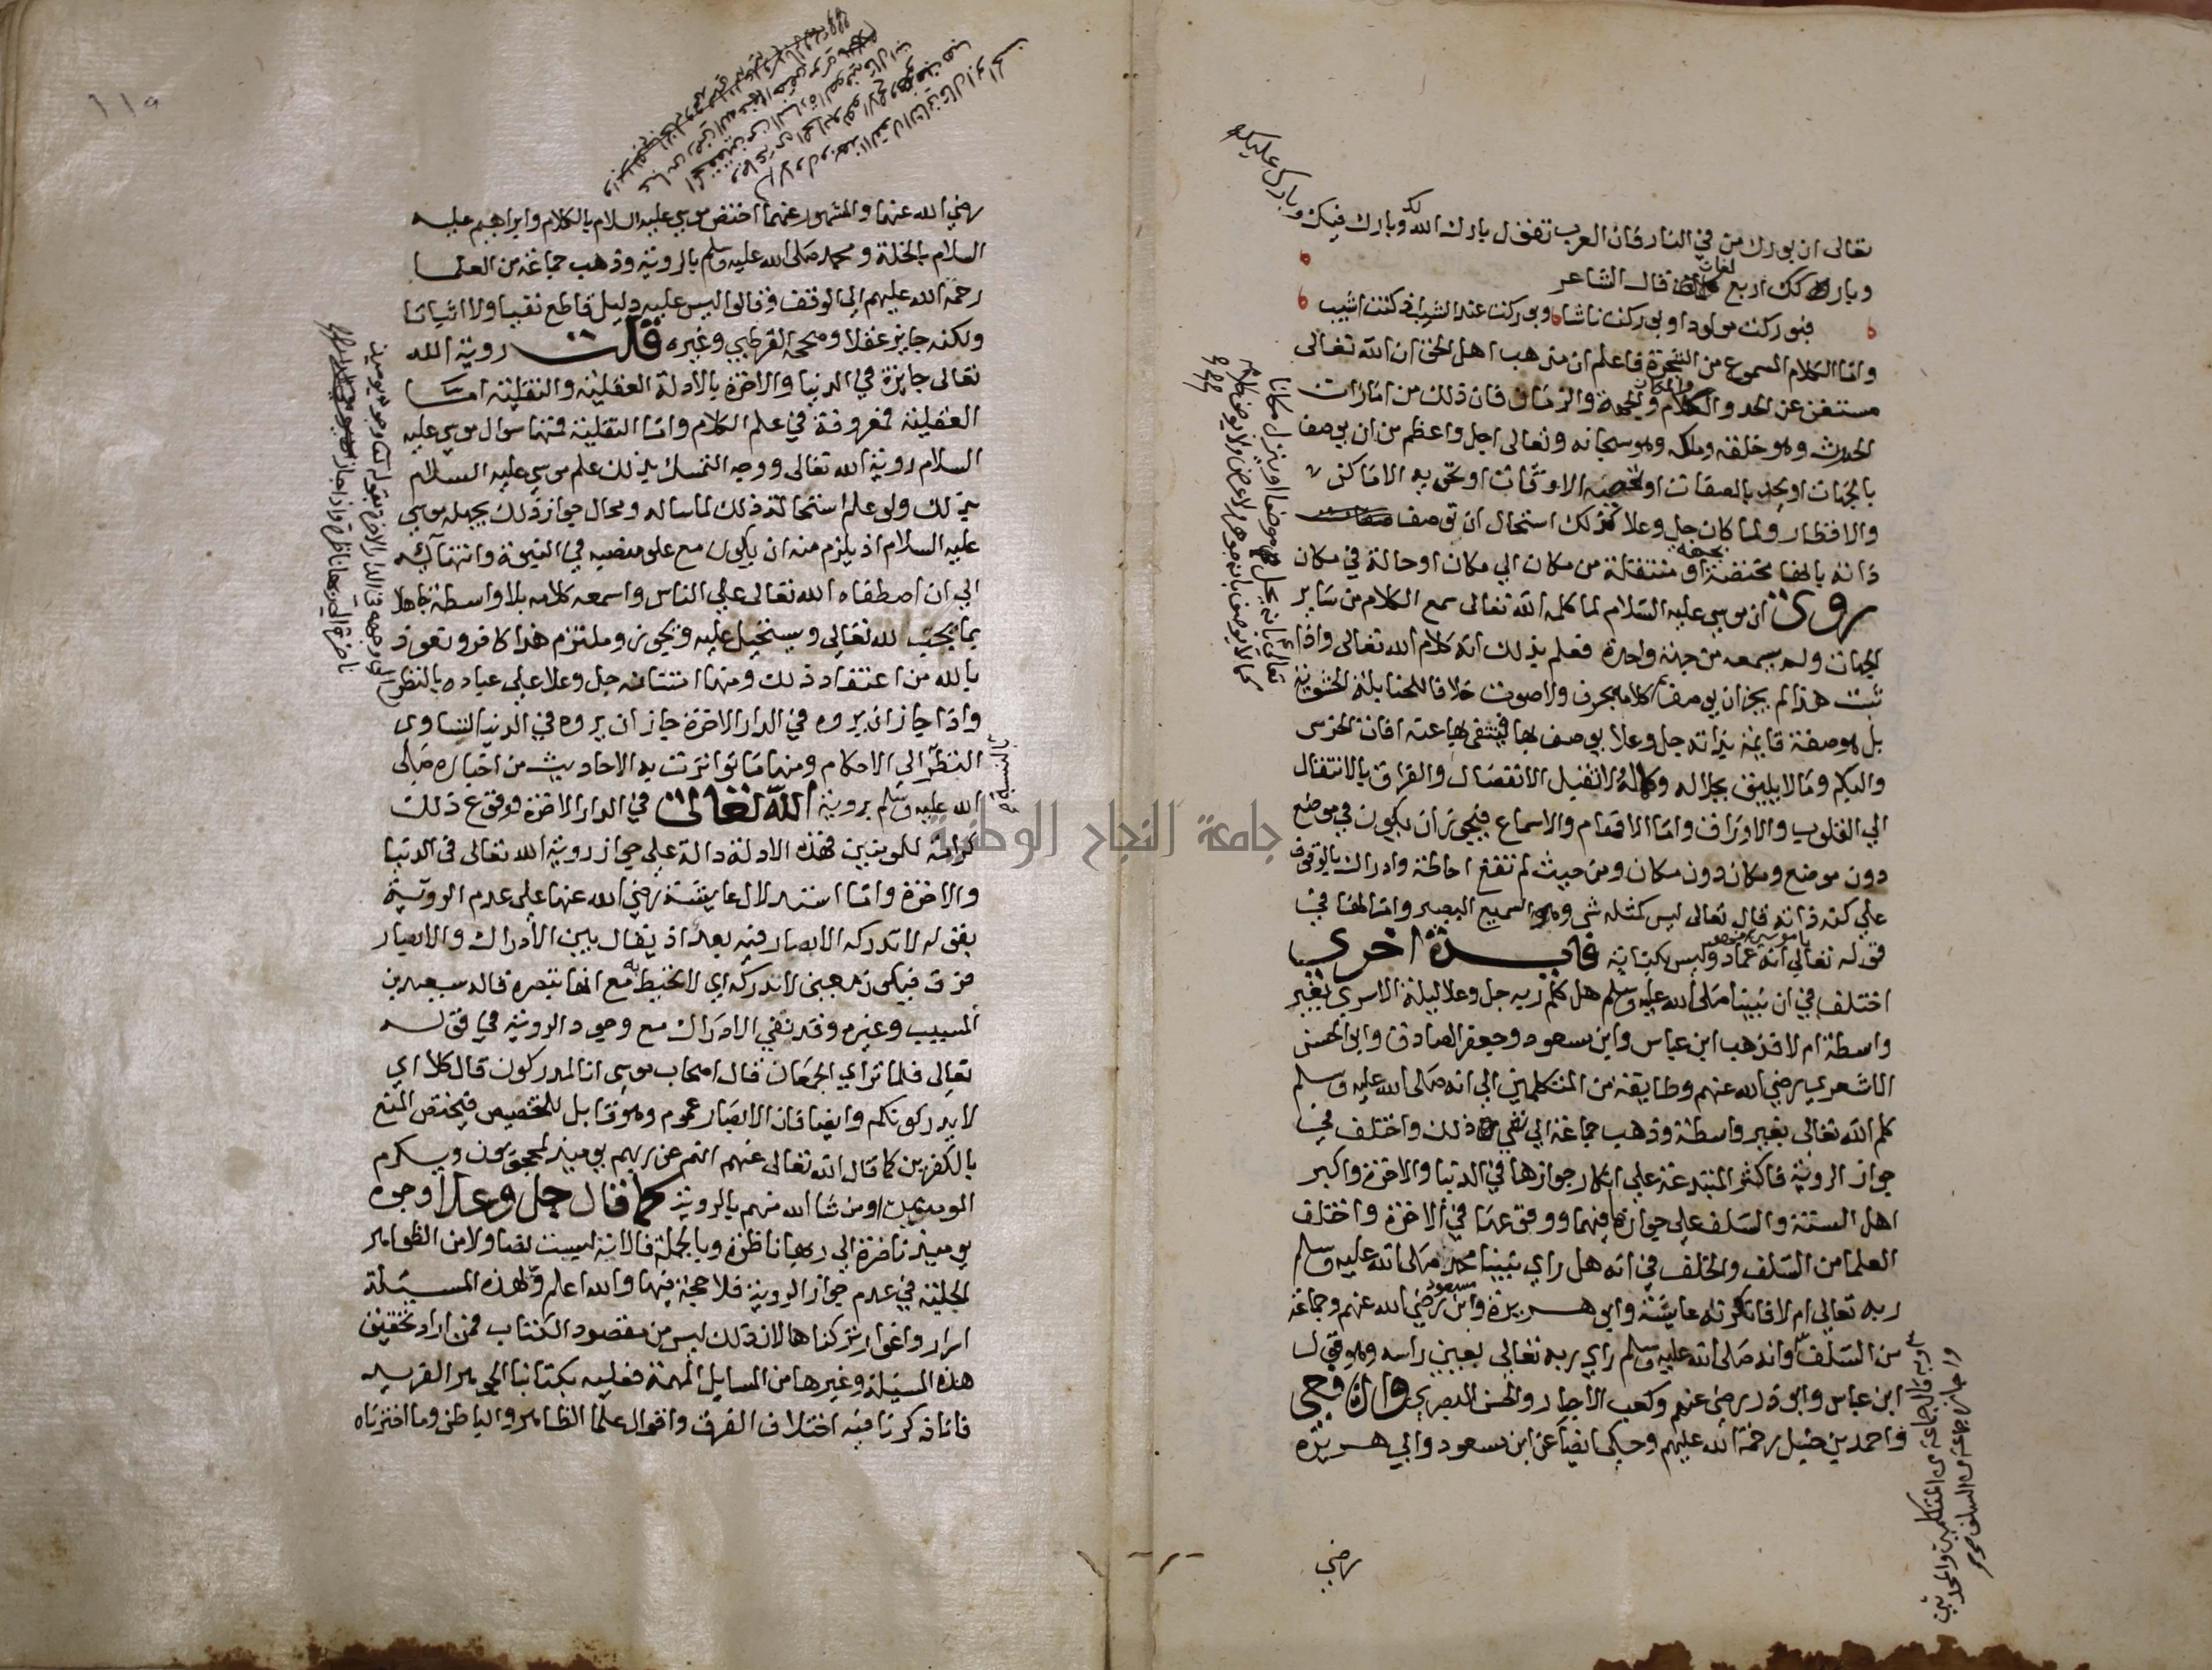 تعالى ان بورك من في النار فان العرب تقول بارك الله لك وبارك فيك وبارك عليك
وبارك لك اربع لغات قال الشاعر
فبوركت مولودا وبوركت ناشا وبوركت عند الشيب اذ كنت اشيب
واما الكلام المسموع من الشجرة فاعلم ان مذهب اهل الحق ان الله تعالى
مستغن عن الحد والكلام والمكان والجهة والزمان فان ذلك من امارات
الحدث وهو خلقه وملكه وهو سبحانه وتعالى اجل واعظم من ان يوصف
بالجهات او يحد بالصفات او تحصيه الاوقات او تحويه الاماكن
والاقطار ولما كان جل وعلا كذلك استحال ان توصف
ذاته بانها مختصة بجهة او منتقلة من مكان الي مكان او حالة في مكان
روي ان موسي عليه السلام لما كلمه الله تعالى سمع الكلام من ساير
الجهات ولم يسمعه من جهة واحدة فعلم بذلك انه كلام الله تعالى واذا
ثبت هذا لم يجز ان يوصف كلامه بحرف ولا صوت خلافا للحنابلة الحشوية
بل هو صفة قايمة بذاته جل وعلا يوصف بها فينتفى بها عنه افات الخرس
والبكم وما لا يليق بجلاله وكماله لا تقبل الانفصال والفراق بالانتقال
الي القلوب والاوراق واما الافهام والاسماع فيجوز ان يكون في موضع
دون موضع ومكان دون مكان ومن حيث لم تقع احاطة وادراك بالوقوف
علي كنه ذاته قال تعالى ليس كمثله شي وهو السميع البصير واما الها في
قوله تعالي انه عماد وليس بكناية فايدة اخري
اختلف في ان نبينا صلى الله عليه وسلم هل كلم ربه جل وعلا ليلة الاسري بغير
واسطة ام لا فذهب ابن عباس وابن مسعود وجعفر الصادق وابو الحسن
الاشعري رضي الله عنهم وطايفة من المتكلمين الي انه صلى الله عليه وسلم
كلم الله تعالى بغير واسطة وذهب جماعة الي نفي ذلك واختلف في
جواز الروية فاكثر المبتدعة علي انكار جوازها في الدنيا والاخرة واكبر
اهل السنة والسلف علي جوازها فيهما ووقوعها في الاخرة واختلف
العلما من السلف والخلف في انه هل راي نبينا محمد صلى الله عليه وسلم
ربه تعالي ام لا فانكرته عايشة وابو هريرة وابن مسعود رضي الله عنهم وجماعة
من السلف وانه صلى الله عليه وسلم راي ربه تعالي بعيني راسه وهو قول
ابن عباس وابو ذر رضي عنهم وكعب الاحبار والحسن البصري والشافعي
واحمد بن حنبل رحمة الله عليهم وحكي ايضا عن ابن مسعود وابي هريرة
رضي
وبه قال جماعة من المتكلمين والمحدثين
واجازه جماعة من السلف
رضي الله عنهما والمشهور عنهما اختص موسي عليه السلام بالكلام وابراهيم عليه
السلام بالخلة ومحمد صلى الله عليه وسلم بالروية وذهب جماعة من العلما
رحمة الله عليهم الي الوقف وقالوا ليس عليه دليل قاطع نفيا ولا اثباتا
ولكنه جايز عقلا وصححه القرطبي وغيره قلت روية الله
تعالى جايزة في الدنيا والاخرة بالادلة العقلية والنقلية اما
العقلية فمعروفة في علم الكلام واما النقلية فمنها سوال موسي عليه
السلام روية الله تعالى ووجه التمسك بذلك علم موسي عليه السلام
بذلك ولو علم استحالة ذلك لما ساله ومحال جواز ذلك بجهله موسي
عليه السلام اذ يلزم منه ان يكون مع علو منصبه في النبوة وانتهايه
الي ان اصطفاه الله تعالى علي الناس واسمعه كلامه بلا واسطة جاهلا
بما يجب لله تعالي ويستحيل عليه ويجوز وملتزم هذا كافر ونعوذ
بالله من اعتقاد ذلك ومنها امتنانه جل وعلا علي عباده بالنظر
واذا جاز ان يروه في الدار الاخرة جاز ان يروه في الدنيا لتساوي
النظر الي الاحكام ومنها ما تواترت به الاحاديث من اخباره صلى
الله عليه وسلم بروية الله تعالى في الدار الاخرة ووقوع ذلك
كرامة للمومنين فهذه الادلة دالة علي جواز روية الله تعالى في الدنيا
والاخرة واما استدلال عايشة رضي الله عنها علي عدم الروية
بقوله لا تدركه الابصار فيه بعد اذ يقال بين الادراك والابصار
فرق فيكون معنى لا تدركه اي لا تحيط به مع انها تبصره قاله سعيد بن
المسيب وغيره وقد نفي الادراك مع وجود الروية في قوله
تعالى فلما تراي الجمعان قال اصحاب موسى انا لمدركون قال كلا اي
لا يدركونكم وايضا فان الابصار عموم وهو قابل للتخصيص فيختص المنع
بالكفرين كما قال الله تعالى عنهم انهم عن ربهم يوميذ لمحجوبون ويكرم
المومنين او من شا الله منهم بالروية كما قال جل وعلا وجوه
يوميذ ناضرة الي ربها ناظرة وبالجملة فالاية ليست نصا ولا من الظواهر
الجلية في عدم جواز الروية فلا حجة فيها والله اعلم ولهذه المسئلة
اسرار واغوار تركناها لان ذلك ليس من مقصود الكتاب فمن اراد تحقيق
هذه المسيلة وغيرها من المسايل المهمة فعليه بكتابنا الجوهر الفريد
فانا ذكرنا فيه اختلاف الفرق واقوال علما الظاهر والباطن وما اخترناه
جامعة النجاح الوطنية